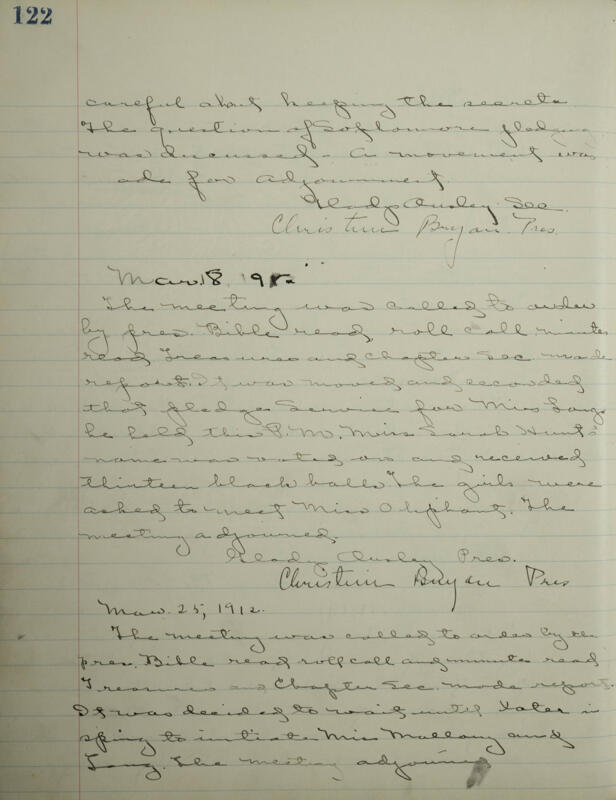 122
careful about keeping the secrets
The question of Sophomore pledging
was discussed. A movement was
ade for adjournment.
Gladys Ousley Sec.
Christine Bryan. Pres.
Mar. 18 191
The meeting was called to order
by pres. Bible read, roll call minutes
read Treasures and chapter Sec made
report. It was moved and seconded
that pledge Service for Miss Lang
be held this P.M. Miss Sarah Hunt's
name was voted on and received
thirteen black balls. The girls were
asked to meet Miss Oliphant. The
meeting adjourned.
Gladys Ousley Pres.
Christine Bryan Pres
Mar. 25, 1912.
The meeting was called to order by the
pres. Bible read roll call and minutes read
Treasures and Chapter Sec. made report.
It was decided to wait until later in
spring to initiate Miss Mallory and
Lang. The meeting adjourned